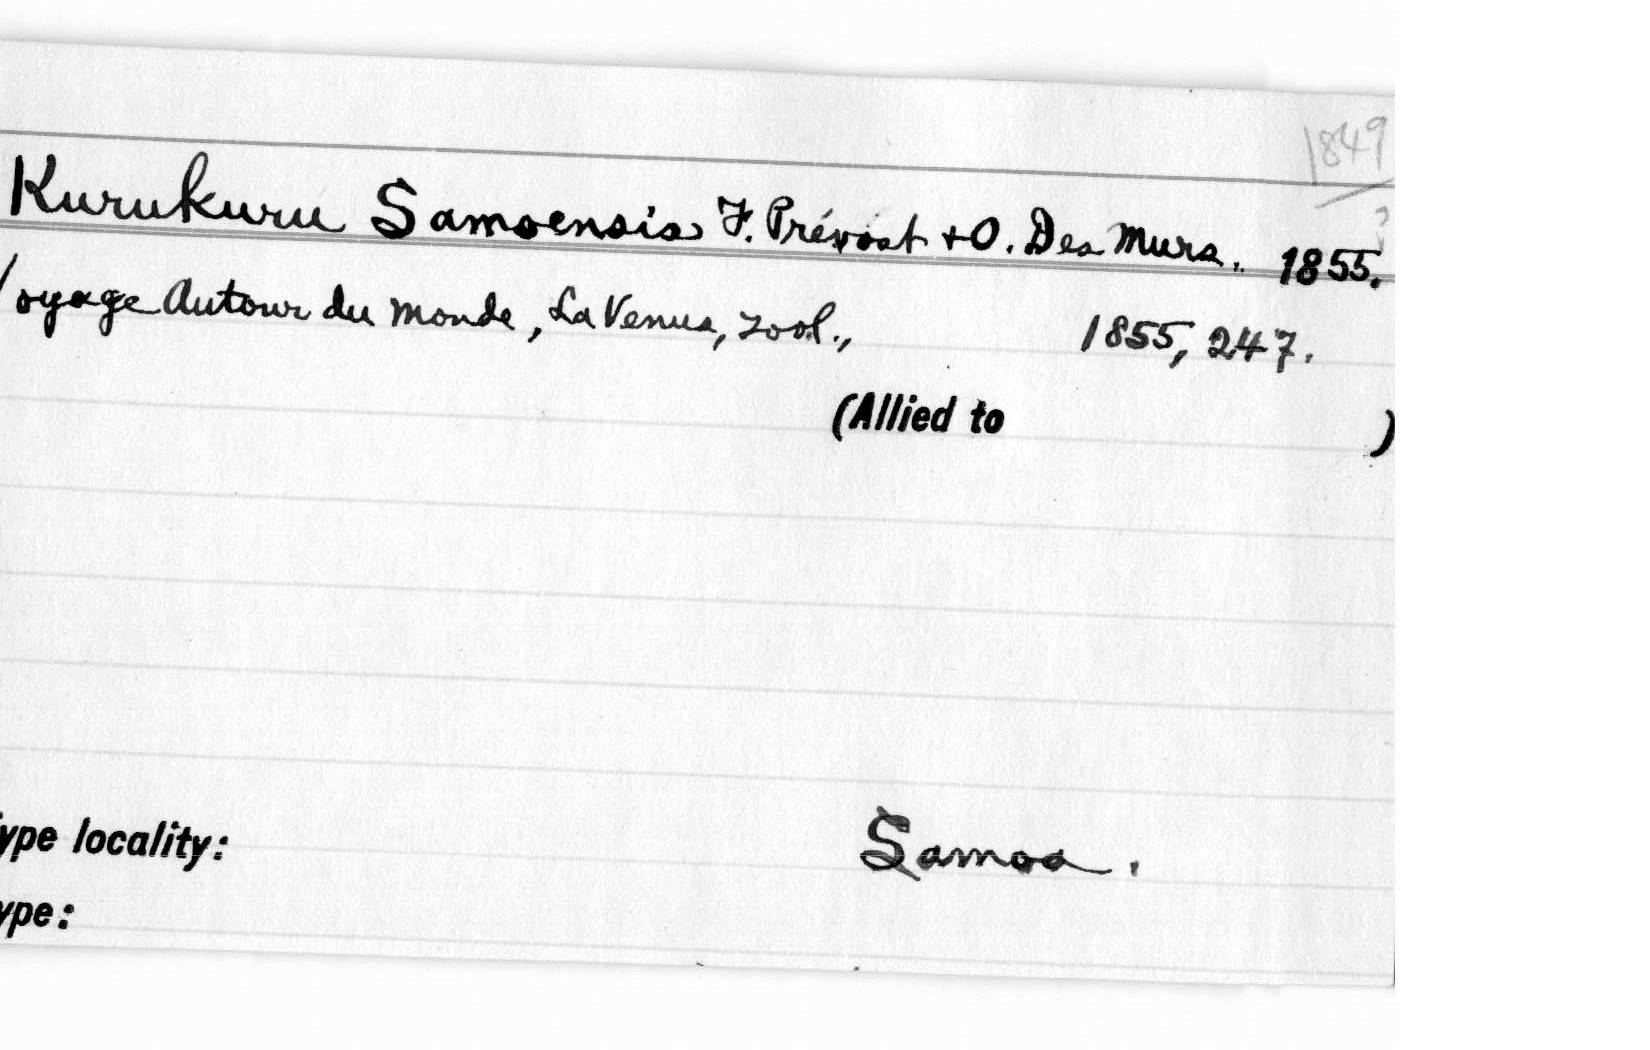 1849
?
Kurukuru Samoensis F. Prévost + O. Des Murs.. 1855.
Voyage Autour du Monde, La Venus, Zool., 1855, 247.
(Allied to )
ype locality: Samoa.
ype: